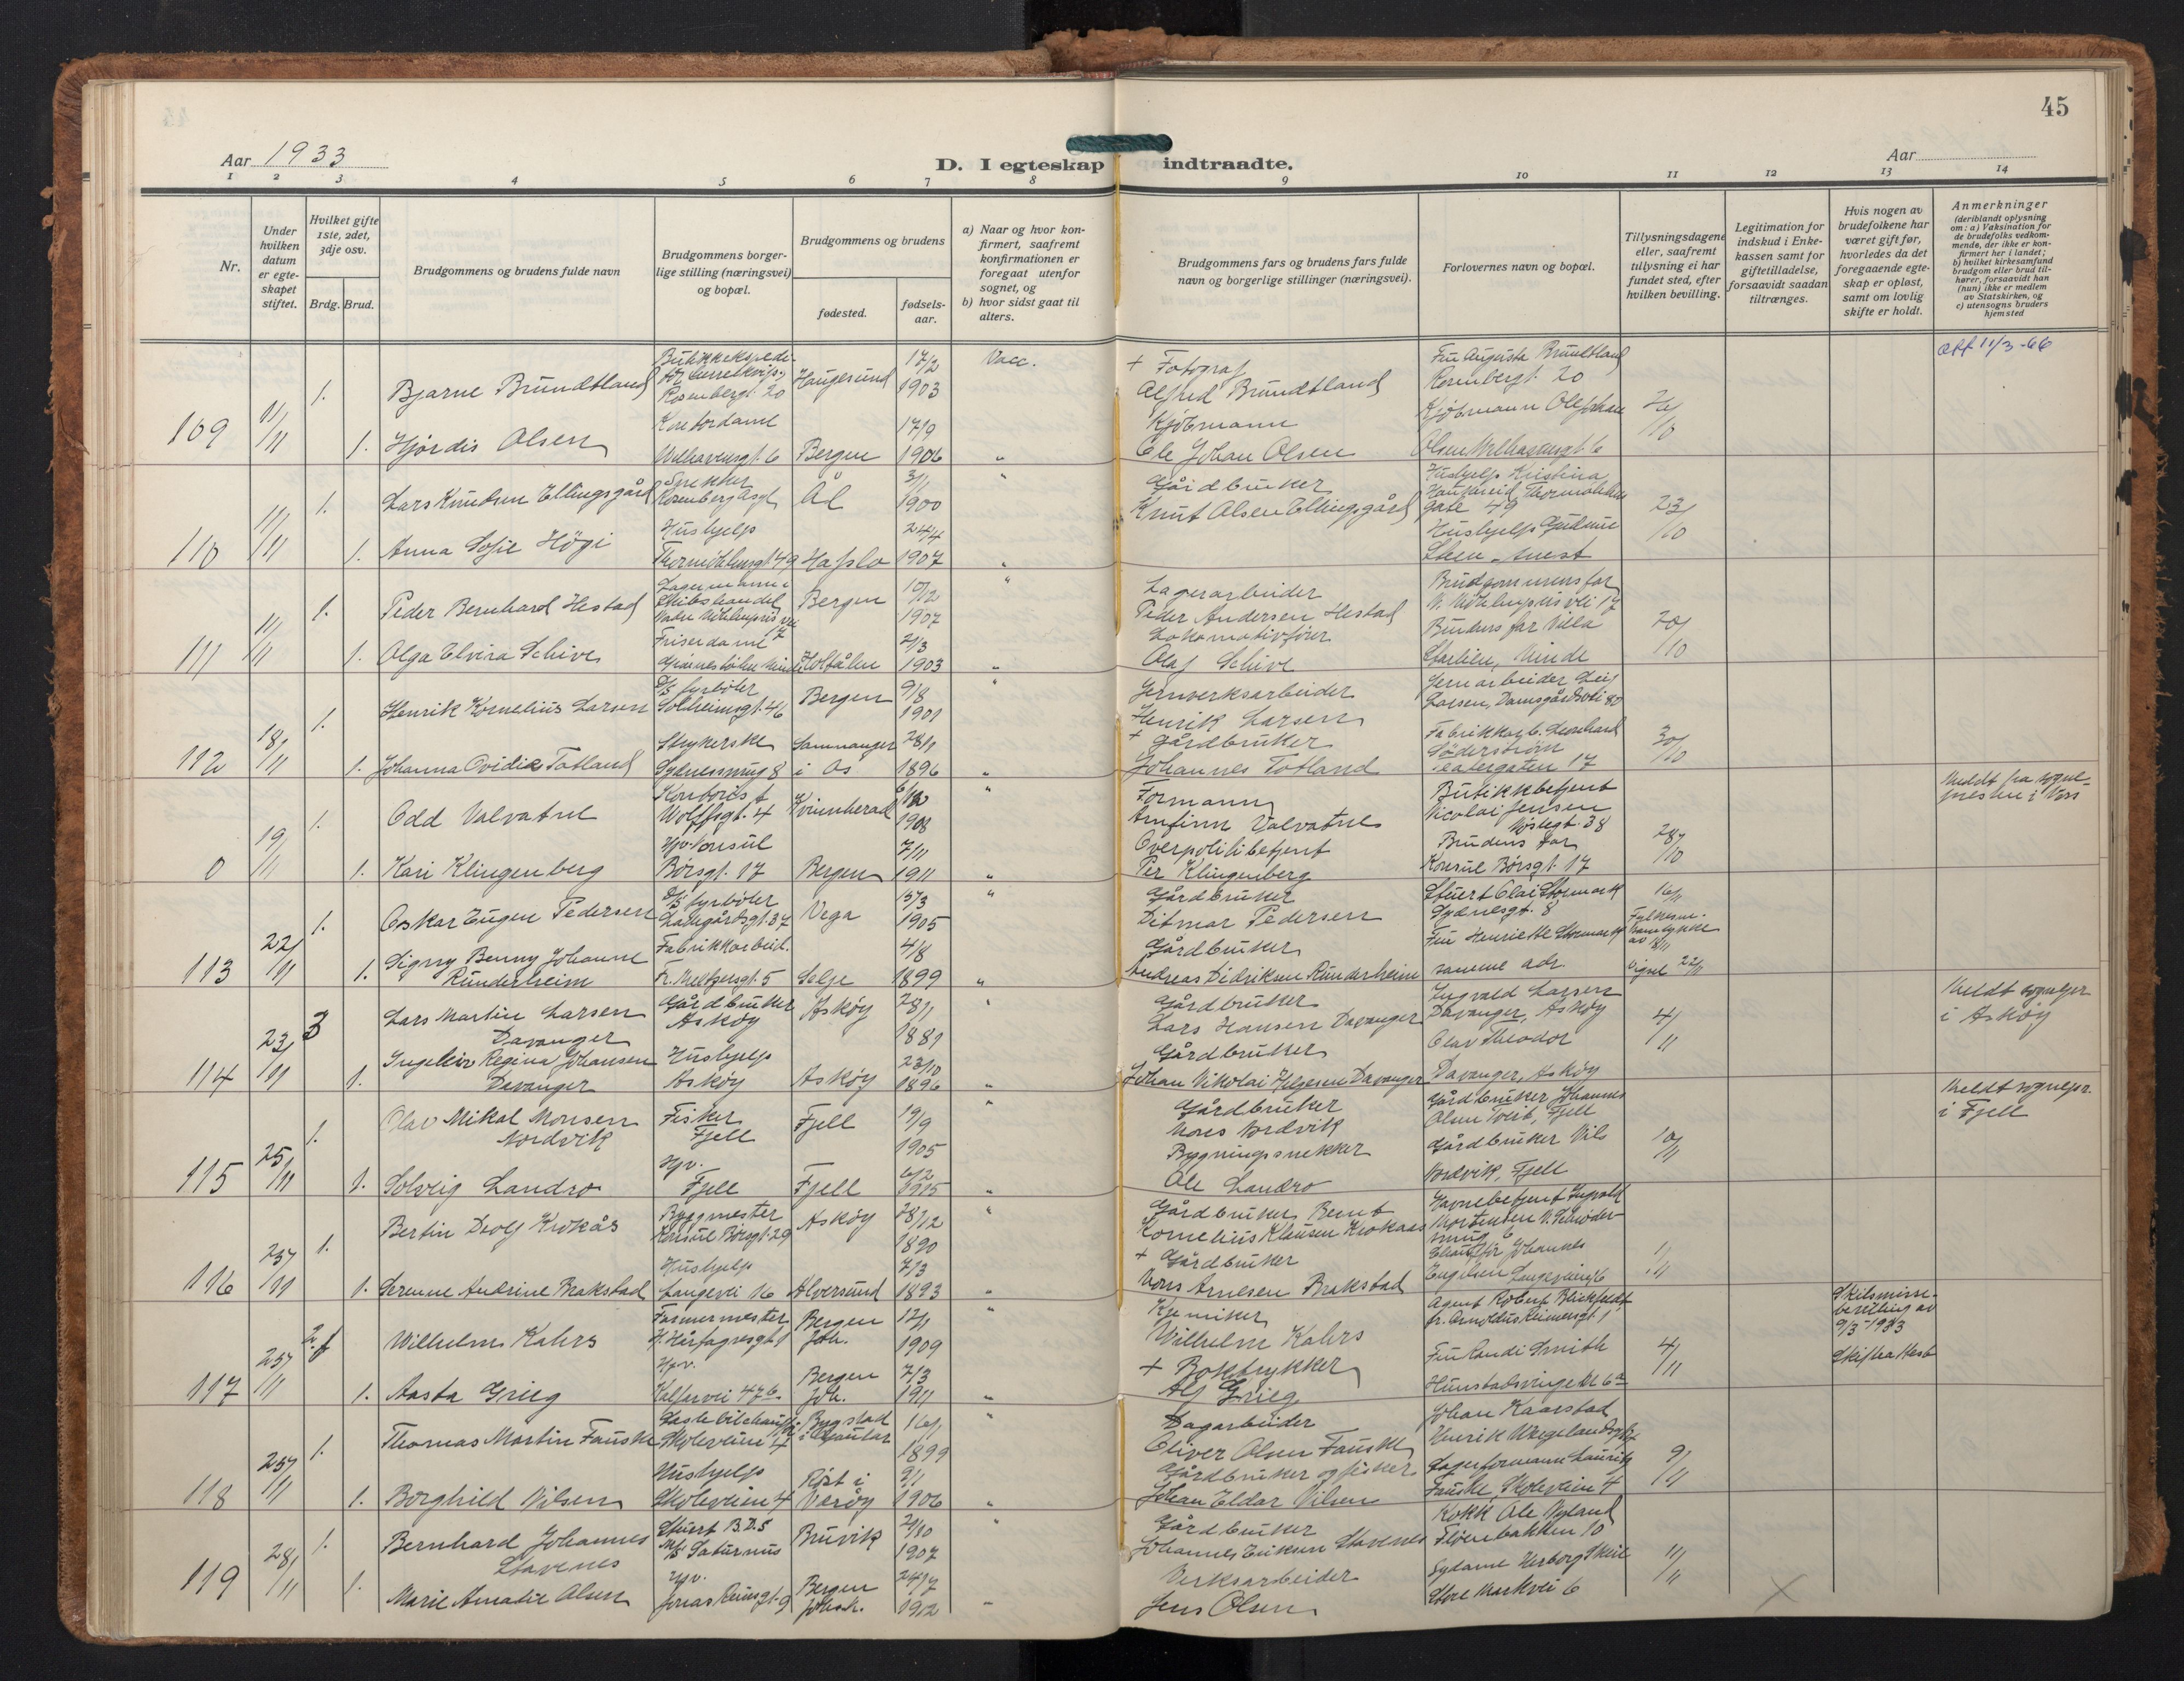 45
Aar 1933
D. I egteskap indtraadte.
Aar
1 2 3 4 5 6 7 8 9 10 11 12 13 14
Nr.
Under hvilken datum er egteskapet stiftet.
Hvilket gifte 1ste, 2det, 3dje osv.
Brdg. Brud.
Brudgommens og brudens fulde navn
Brudgommens borgerlige stilling (næringsvei) og bopæl.
Brudgommens og brudens
fødested.
fødselsaar.
a) Naar og hvor konfirmert, saafremt konfirmationen er foregaat utenfor sognet, og
b) hvor sidst gaat til alters.
Brudgommens fars og brudens fars fulde navn og borgerlige stillinger (næringsvei).
Forlovernes navn og bopæl.
Tillysningsdagene eller, saafremt tillysning ei har fundet sted, efter hvilken bevilling.
Legitimation for indskud i Enkekassen samt for giftetilladelse, forsaavidt saadan tiltrænges.
Hvis nogen av brudefolkene har været gift før, hvorledes da det foregaaende egteskap er opløst, samt om lovlig skifte er holdt.
Anmerkninger
(deriblandt oplysning om: a) Vaksination for de brudefolks vedkommende, der ikke er konfirmert her i landet; b) hvilket kirkesamfund brudgom eller brud tilhører, forsaavidt han (hun) ikke er medlem av Statskirken, og c) utensogns bruders hjemsted
109 11/11 1. Bjarne Brundtland Rosenbergt. 20 Haugesund 17/2 1903 Vacc. + Fotograf Alfred Brundtland Fru Augusta Brundtland Rosenbergt. 20 26/10
1. Hjørdis Olsen Kontordame Welhavensgt. 6 Bergen 17/9 1906 " Kjøbmann Ole Johan Olsen Kjøbmann Ole Johan Olsen Welhavensgt. 6
110 11/11 1. Lars Knudsen Ellingsgård Snekker Ål 3/1 1900 " Gårdbruker Knut Olsen Ellingsgård Hushjelp Kristina gate 49 23/10
1. Anna Sofie Högi Hushjelp Thormöhlensgt. 49 Hafslo 24/4 1907 " Hushjelp Gudrun
111 11/11 1. Peder Bernhard Hestad Bergen 10/12 1907 " Lagerarbeider Peder Andersen Hestad Brudgommens far 20/10
1. Olga Elvira Schive Friserdame Holtålen 21/3 1903 " Lokomotivfører Olaf Schive Brudens far Villa Minde
112 18/11 1. Henrik Kornelius Larsen D/S fyrbøter Solheimsgt. 46 Bergen 9/8 1901 " Jernverksarbeider Henrik Larsen Jernarbeider Larsen, Damsgårdsvei 80 30/10
1. Johanna Ovidia Totland Strykerske Sydnessmug 8 Samnanger i Os 28/1 1896 " + Gårdbruker Johannes Totland Fabrikkarb. Leonhard Söderström Teatergaten 17
0 19/11 1. Odd Valvatne Kontorist Wolffsgt. 4 Kvinnherad 1908 " Formann Arnfinn Valvatne Butikkbetjent Nicolai Jensen Nøstegt. 38 28/10 Meldt fra sogneprestens i Voss
1. Kari Klingenberg Hjv. Konsul Børsgt. 17 Bergen 7/11 1911 " Overpolitibetjent Per Klingenberg Brudens far Konsul Børsgt. 17
113 22/11 1. Oskar Eugen Pedersen D/S fyrbøter Ladegårdsgt. 37 Vega 15/3 1905 " Gårdbruker Ditmar Pedersen Stuert Olai Stormark Sydnesgt. 8
1. Signy Benny Johanne Runderheim Fabrikkarbeid. Fr. Meltzersgt. 5 Selje 4/8 1899 " Gårdbruker Andreas Didriksen Runderheim Fru Henriette Stormark samme adr. Vigsel 22/11
114 23/11 3 Lars Martin Larsen Davanger Gårdbruker Askøy Askøy 28/1 1881 " Gårdbruker Lars Hansen Davanger Ingvald Larsen Davanger, Askøy 4/11 Meldt sognepr i Askøy
1. Ingeleiv Regina Johansen Davanger Hushjelp Askøy Askøy 23/10 1896 " Gårdbruker Johan Nikolai Helgesen Davanger Olav Theodor Davanger, Askøy
115 25/11 1. Olav Mikal Monsen Nordvik Fisker Fjell Fjell 19/9 1905 " Gårdbruker Mons Nordvik Gårdbruker Johannes Olsen Fjell 10/11 Meldt sognepr. i Fjell
1. Solveig Landro Hjv. Fjell Fjell 6/2 1915 " Bygningssnekker Ole Landro Gårdbruker Nils Nordvik, Fjell
116 25/11 1. Bertin Krokås Byggmester Konsul Børsgt. 29 Askøy 28/12 1890 " Gårdbruker Bernt Kornelius Klausen Krokaas Havnebetjent Ingvald Mortensen 1/11
1. Serenne Andrine Brakstad Hushjelp Langevei 16 Alversund 7/3 1893 " + Gårdbruker Mons Arnesen Brakstad Johannes Engelsen
117 25/11 2. f Wilhelm Kahrs Farmermester H. Hårfagresgt 1 Bergen Joh. 12/1 1909 " Kjemiker Wilhelm Kahrs Agent Robert fr. Arnoldus Reimersgt. 1 4/11 Skilsmissebevilling av 9/3-1933
1. Aasta Grieg Hjv. Kalfarvei 47 b. Bergen Joh. 7/3 1911 " + Boktrykker Alf Grieg Fru Randi Smith
118 25/11 1. Thomas Martin Fauske Skoleveien 4 Bygstad i Gaular 16/1 1899 " Dagarbeider Oliver Olsen Fauske Johan Kaarstad Henrik Wergelandsgt 9/11
1. Borghild Nilsen Hushjelp Skoleveien 4 Røst i Værøy 9/1 1906 " Gårdbruker og fisker Johan Eldar Nilsen Lagerformann Laurits Fauske, Skoleveien 4
119 28/11 1. Bernhard Johannes Stavenes Stuert B.D.S M/S Saturnus Bruvik 21/10 1907 " Gårdbruker Johannes Eriksen Stavenes Kokk Ole Nyland Fløenbakken 10 11/11
1. Marie Amalie Olsen Hjv. Jonas Reinsgt. 9 Bergen Johsk. 24/7 1912 " Verksarbeider Jens Olsen Sydame Herborg Store Markvei 6
Att 11/3-66